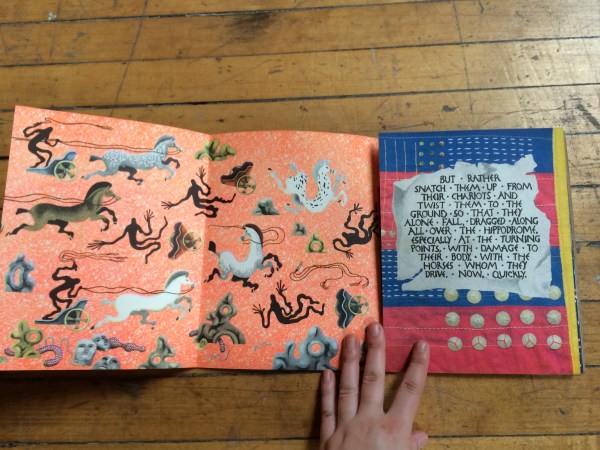 BUT · RATHER
SNATCH · THEM · UP · FROM
THEIR · CHARIOTS · AND
TWIST · THEM · TO · THE
GROUND · SO · THAT · THEY
ALONE · FALL · DRAGGED · ALONG
ALL · OVER · THE · HIPPODROME,
ESPECIALLY · AT · THE · TURNING
POINTS, · WITH · DAMAGE · TO
THEIR · BODY, · WITH · THE
HORSES · WHOM · THEY
DRIVE. · NOW, · QUICKLY.